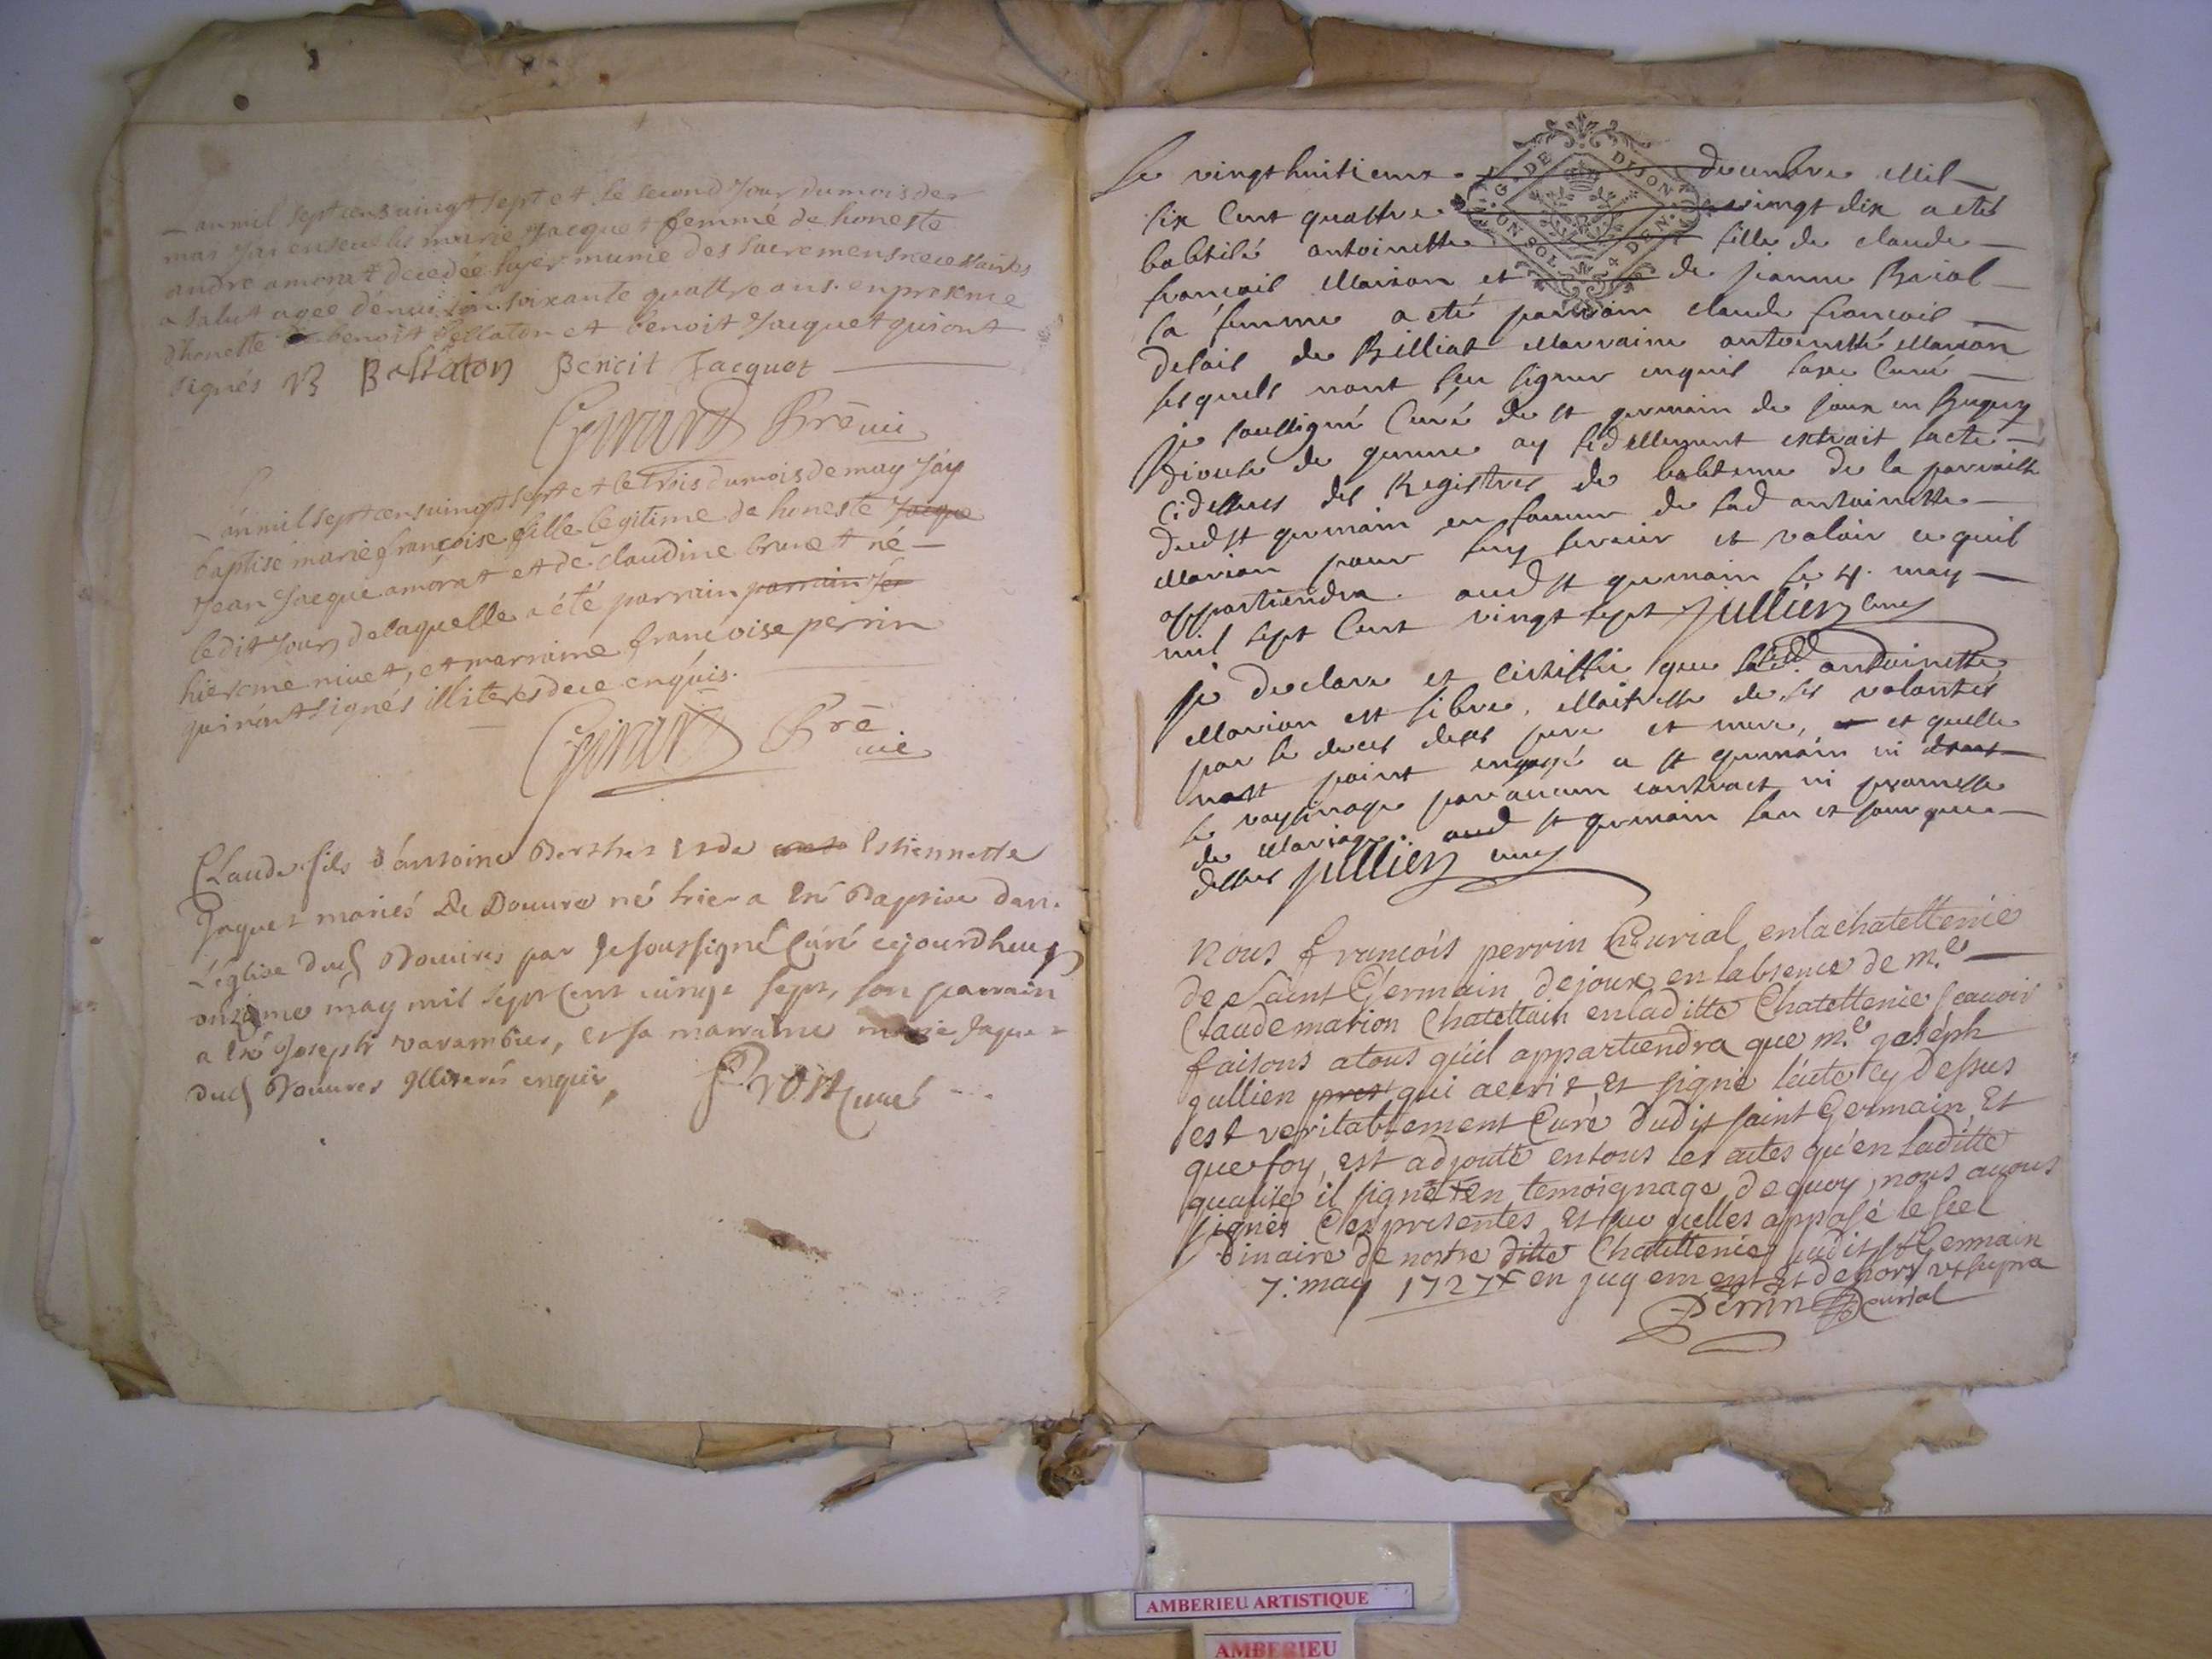 L'an mil sept cens vingt sept et le second jour du mois de
mai j'ai enseveli marie Jacquet femme de honeste
andre amorat decedée hyer munie des sacremens necessaires
a salut agée d'environ soixante quattre ans. en presence
d'honeste benoit Bellaton et benoit Jacquet qui ont
signés B Bellaton Benoit Jacquet
Girard Prê vic
L'an mil sept cens vingt sept et le trois du mois de may j'ay
baptisé marie françoise fille legitime de honeste Jacque
Jean Jacque amorat et de claudine brunet né
ledit jour de laquelle a été parrain parrain
hierome nivet, et marraine françoise perrin
qui n'ont signés illiterés de ce enquis.
Girard Prê
vic
Claude fils d'antoine Berthet et de Estiennette
Jaquet mariés de Douvre né hier a eté Baptise dans
L'église dud Douvres par Je soussigné Curé cejourdhuy
onzieme may mil sept Cent vingt sept, son parrain
a eté Joseph varambier, et sa marraine marie Jaquet
dud Douvres Illiterés enquis,
Prost curé
Le vingt huitieme decembre Mil
six Cent quattre vingt dix a eté
babtisé antoinette fille de claude
francois Marion et de jeanne Brial
sa femme a eté parrain claude francois
de Billiat Marraine antoinette Marion
lesquels n'ont seu signer enquis
je soussigné Curé de st germain de joux en Bugey
diocese de genеve ay fidellement extrait lacte
cidessus des Registres de babteme de la parroisse
dudst germain en faveur de lad antoinette
Marion pour luy servir et valoir ce quil
appartiendra. aud st germain le 4. may
mil sept Cent vingt sept Jullien curé
je declare et certiffie que lad. antoinette
Marion est libre, Maitresse de ses volontés
par le deces de ses pere et mere, et quelle
nest point engagé a st germain ni dans
le voysinage par aucun contract ni promesse
de Mariage. aud st germain lan et jour que
dessus Jullien curé
Nous françois perrin Curial en la chatellenie
de Saint Germain de joux en l'absence de m.e
Claude marion Chatellain en laditte Chatellenie sçavoir
faisons a tous qu'il appartiendra que m.e joseph
jullien qui a ecrit et signé l'acte cy dessus
est veritablement Curé dudit saint Germain Et
que foy est adjoutée en tous les actes qu'en laditte
qualité il signe en temoignage de quoy, nous avons
signés Ces presentes Et sur icelles apposé le seel
dinaire de nostre ditte Chatellenie judit st Germain
7. may 1727 en jugement et dehors ut supra
Perrin Curial
G. DE DIJON
UN SOL 4 DEN.
AMBERIEU ARTISTIQUE
AMBERIEU